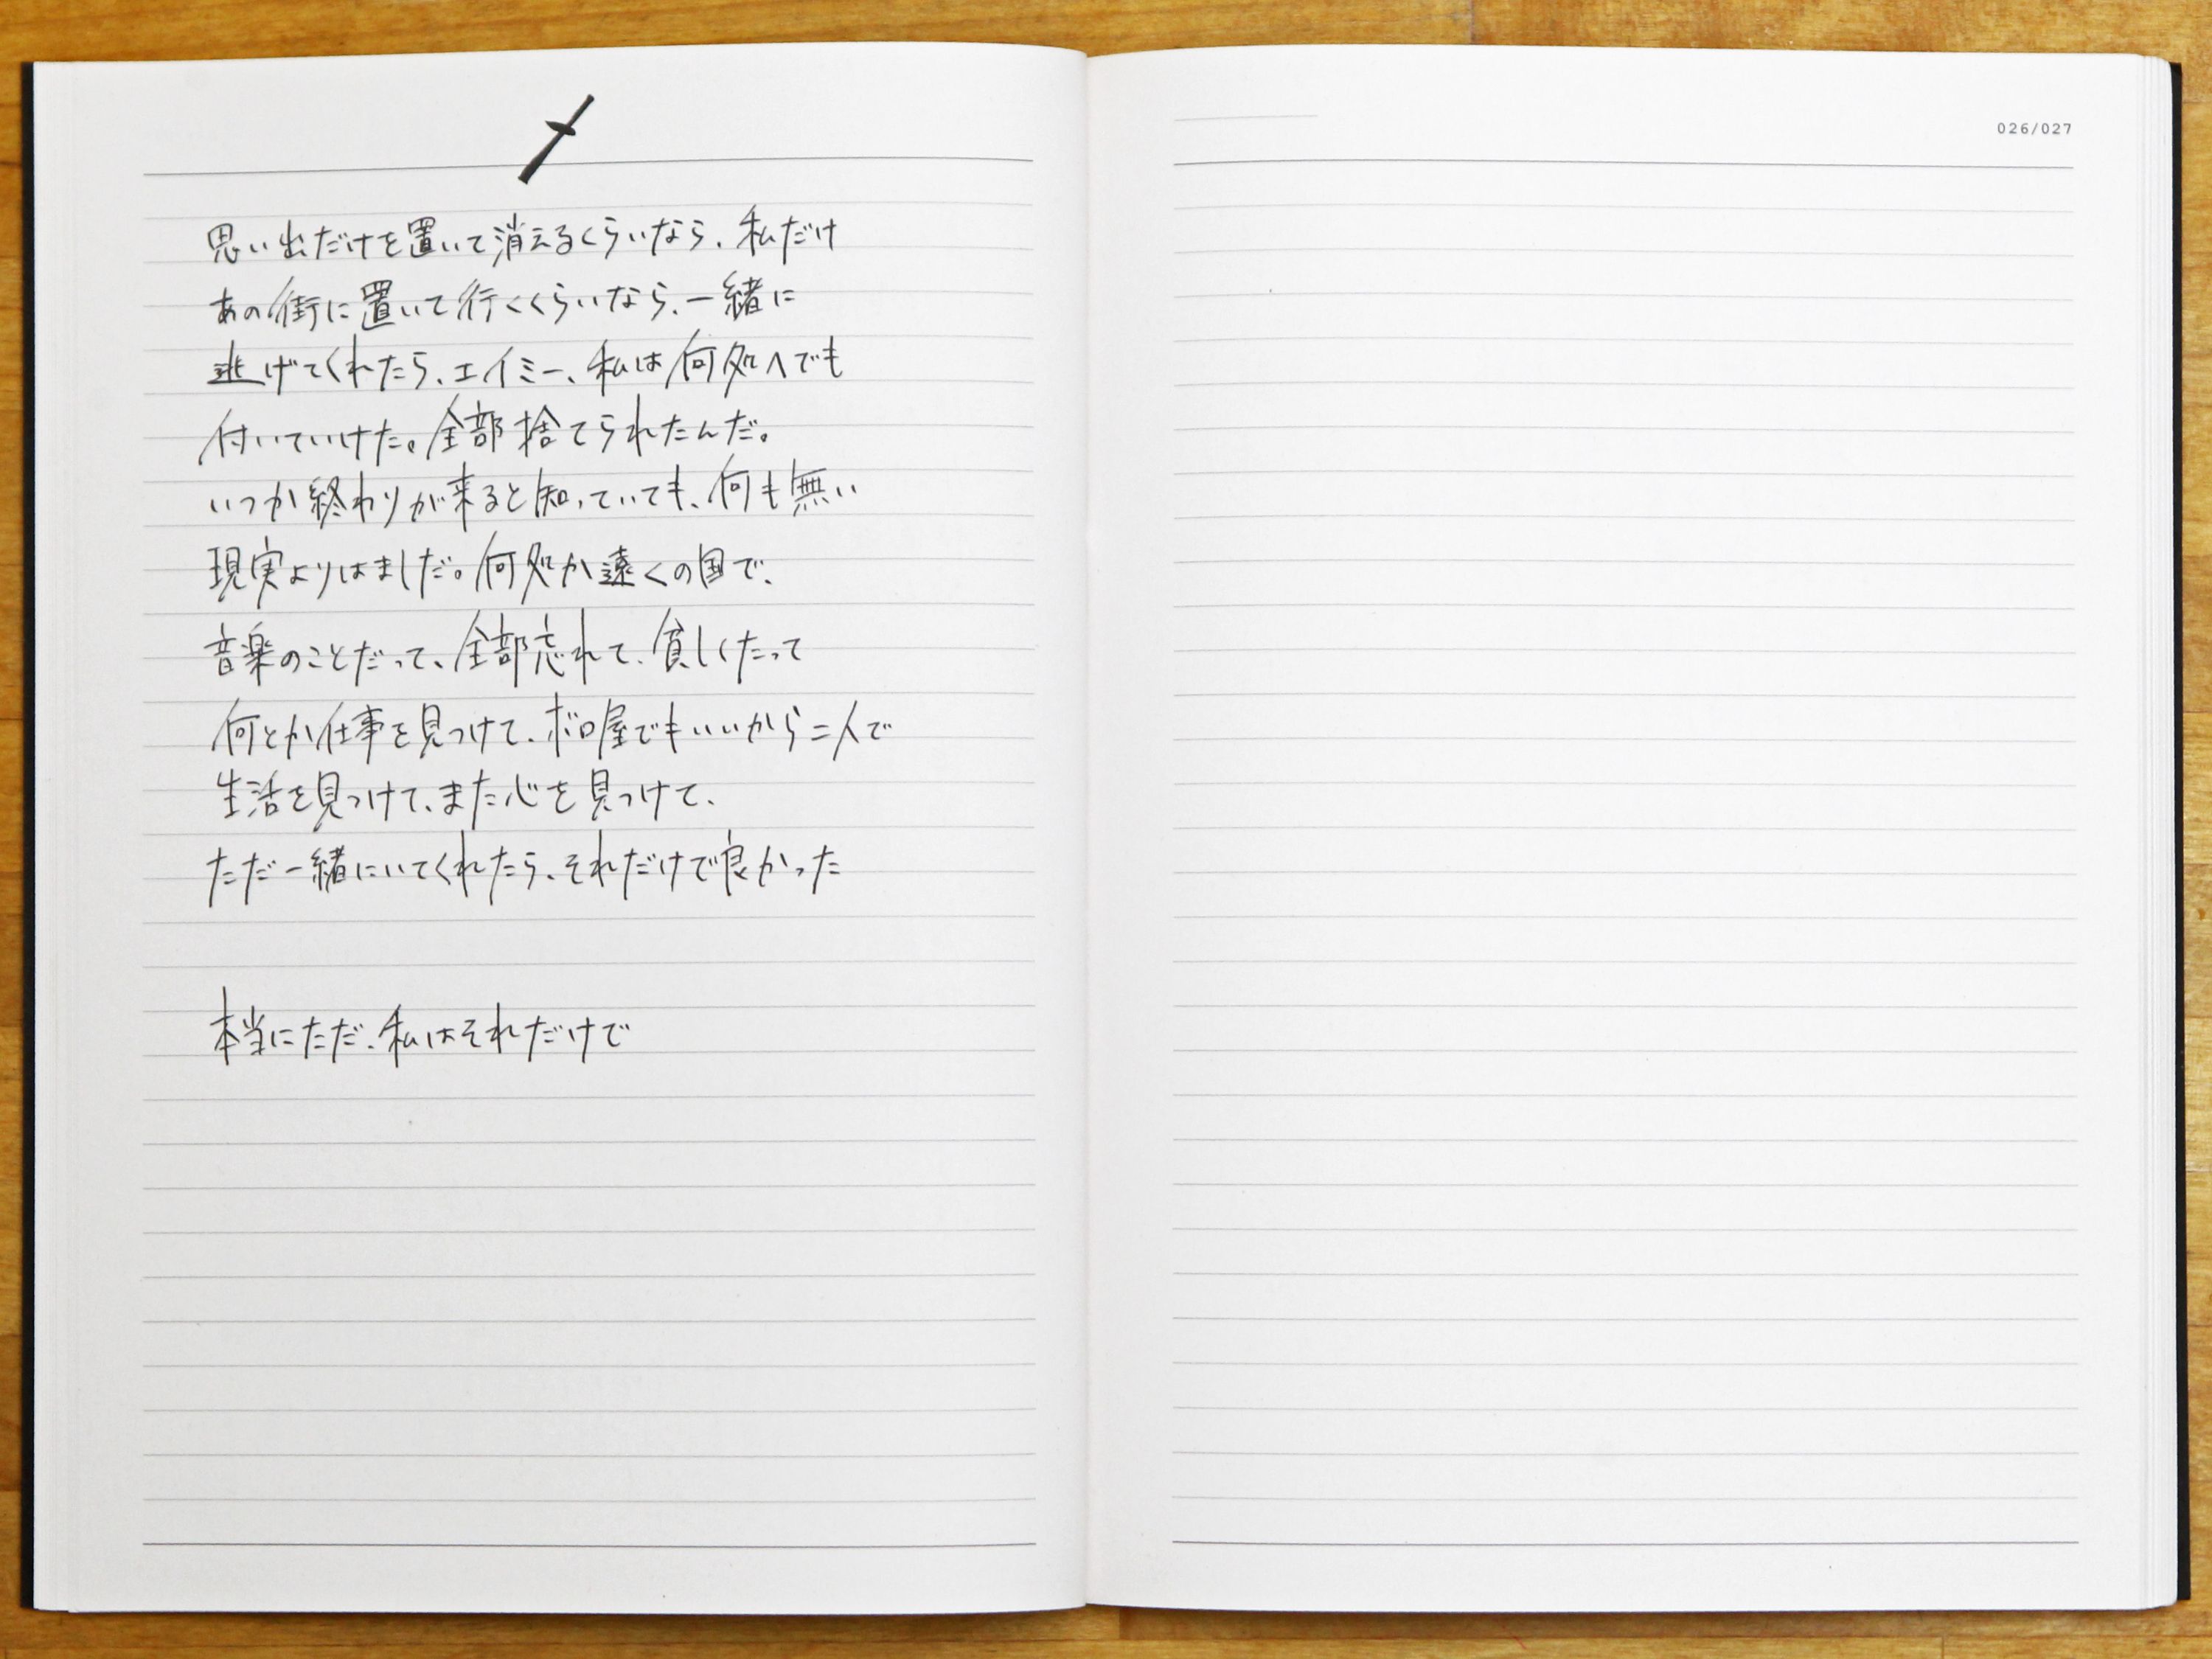 思い出だけを置いて消えるくらいなら、私だけ
あの街に置いて行くくらいなら、一緒に
逃げてくれたら、エイミー、私は何処へでも
付いていけた。全部捨てられたんだ。
いつか終わりが来ると知っていても、何も無い
現実よりはましだ。何処か遠くの国で、
音楽のことだって、全部忘れて、貧しくたって
何とか仕事を見つけて、ボロ屋でもいいから二人で
生活を見つけて、また心を見つけて、
ただ一緒にいてくれたら、それだけで良かった
本当にただ、私はそれだけで
026/027